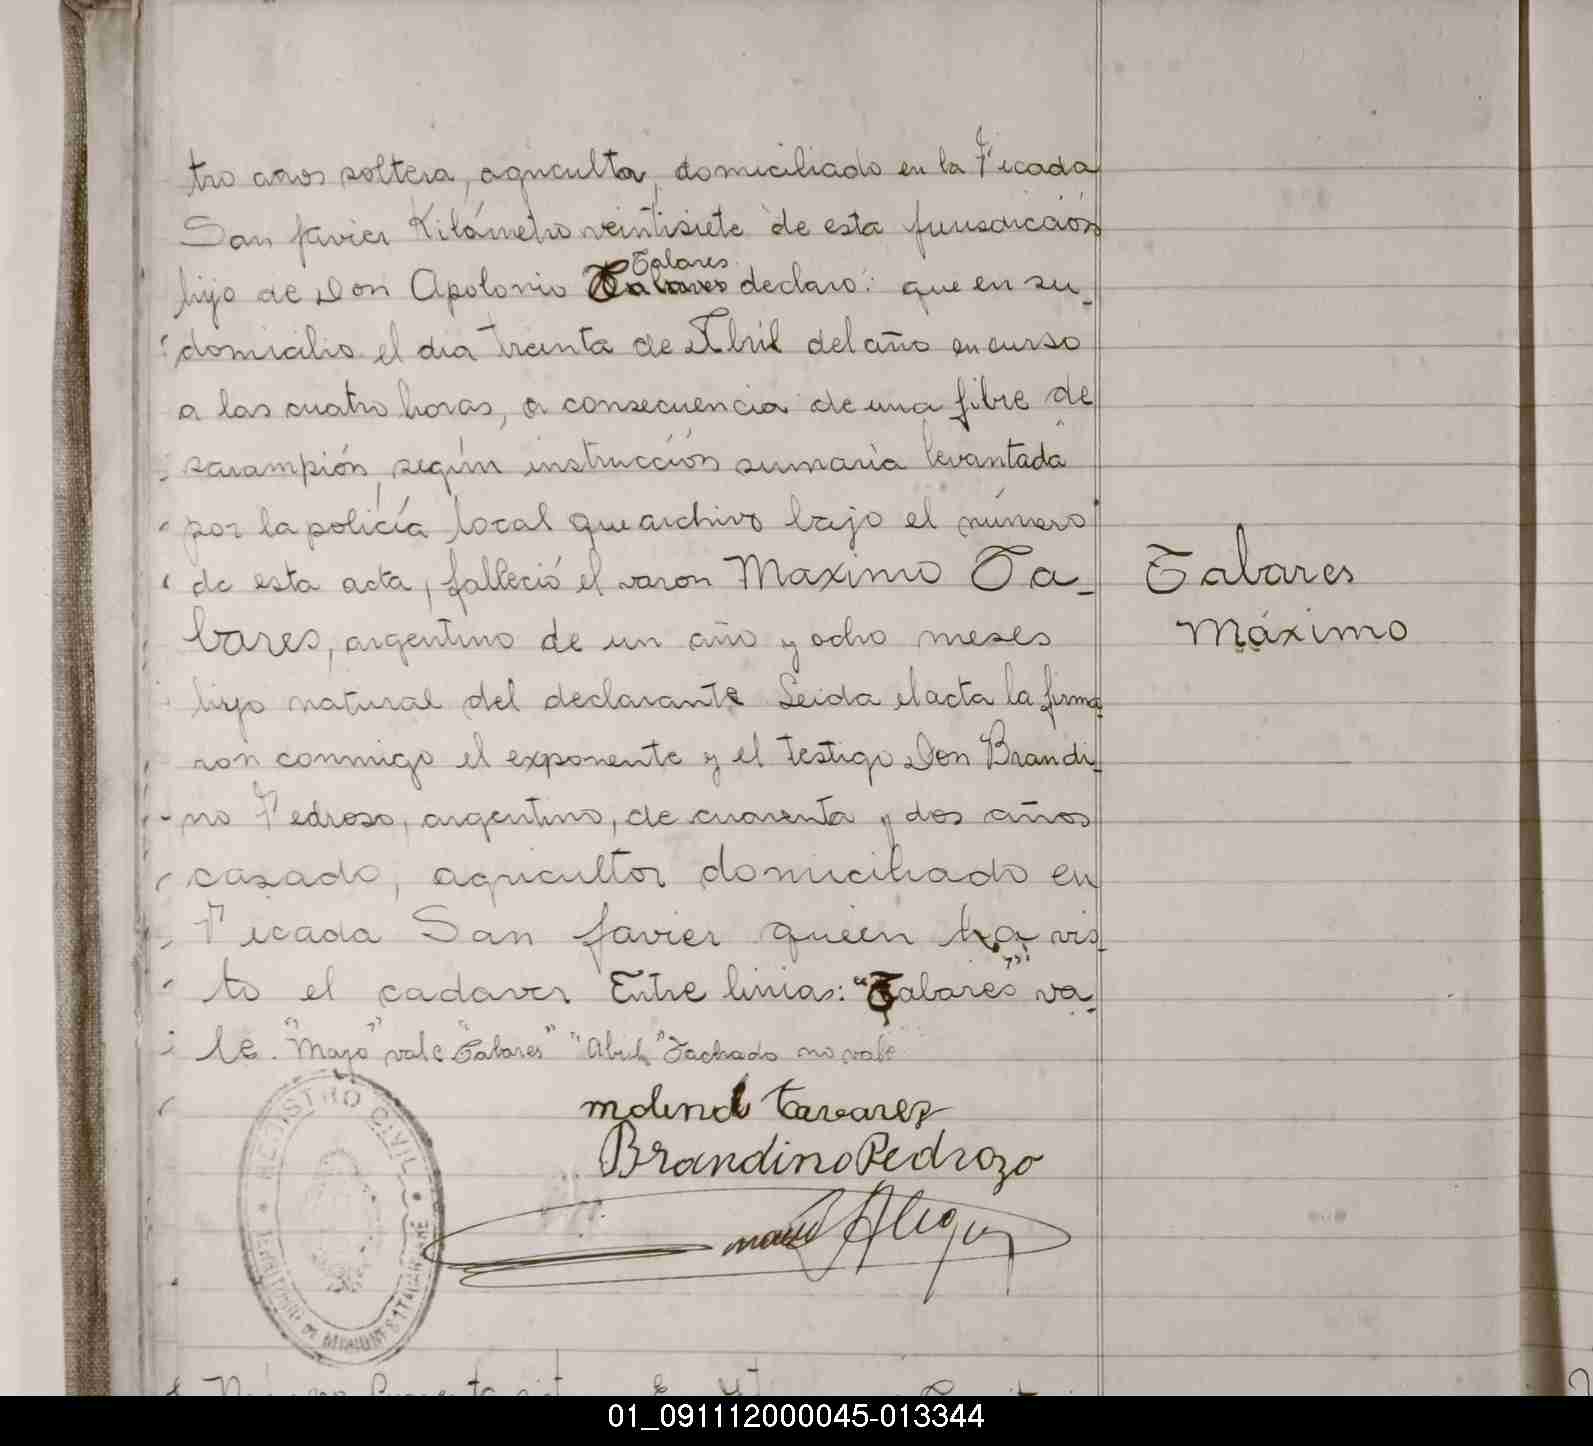 tro años soltera, agricultor, domiciliado en la Picada
San Javier Kilómetro veintisiete de esta jurisdicción
Tabares
hijo de Don Apolonio declaro: que en su
domicilio el dia treinta de Abril del año en curso
a las cuatro horas, a consecuencia de una fibre de
sarampión, según instrucción sumaria levantada
por la policía local que archivo bajo el número
de esta acta, falleció el varon Maximo Ta-
bares, argentino de un año y ocho meses
hijo natural del declarante Leida el acta la firma-
ron conmigo el exponente y el testigo Don Brandi-
no Pedroso, argentino, de cuarenta y dos años
casado, agricultor domiciliado en
Picada San Javier quien ha vis-
to el cadaver Entre linias: "Tabares" va-
le. "Mayo" vale "Tabares" "Abril" Tachado no vale
Tabares
Máximo
tavares
Brandino Pedrozo
REGISTRO CIVIL
01_091112000045-013344